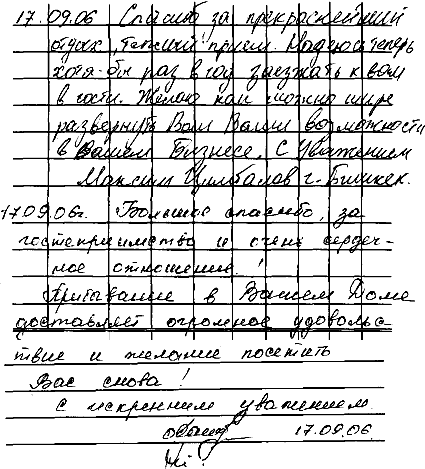 17.09.06 Спасибо за прекраснейший
отдых, теплый прием. Надеюсь теперь
хотя-бы раз в год заезжать к вам
в гости. Желаю как можно шире
развернуть Вам Ваши возможности
в Вашем Бизнесе. С Уважением
Максим Цимбалов г. Бишкек.
17.09.06г. Большое спасибо, за
гостеприимство и очень сердеч-
ное отношение!
Прибывание в Вашем Доме
доставляет огромное удовольс-
твие и желание посетить
Вас снова!
С искренним уважением
17.09.06